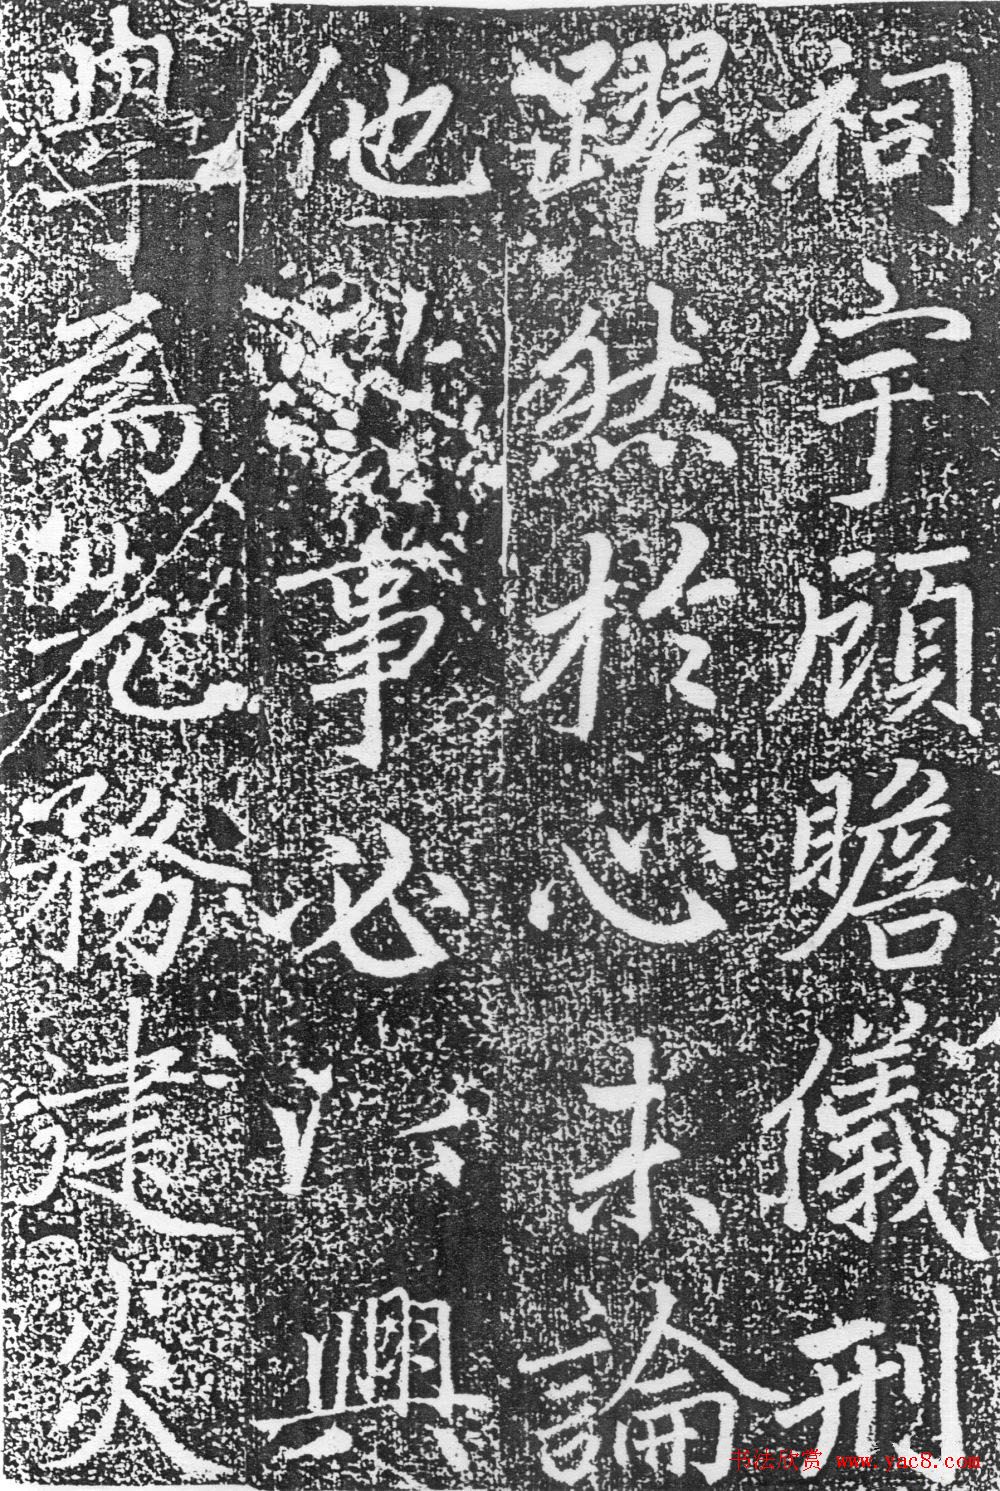 祠宇顧瞻儀刑
躍然於心未論
他事必以興
學爲先務建次
书法欣赏 www.yac8.com